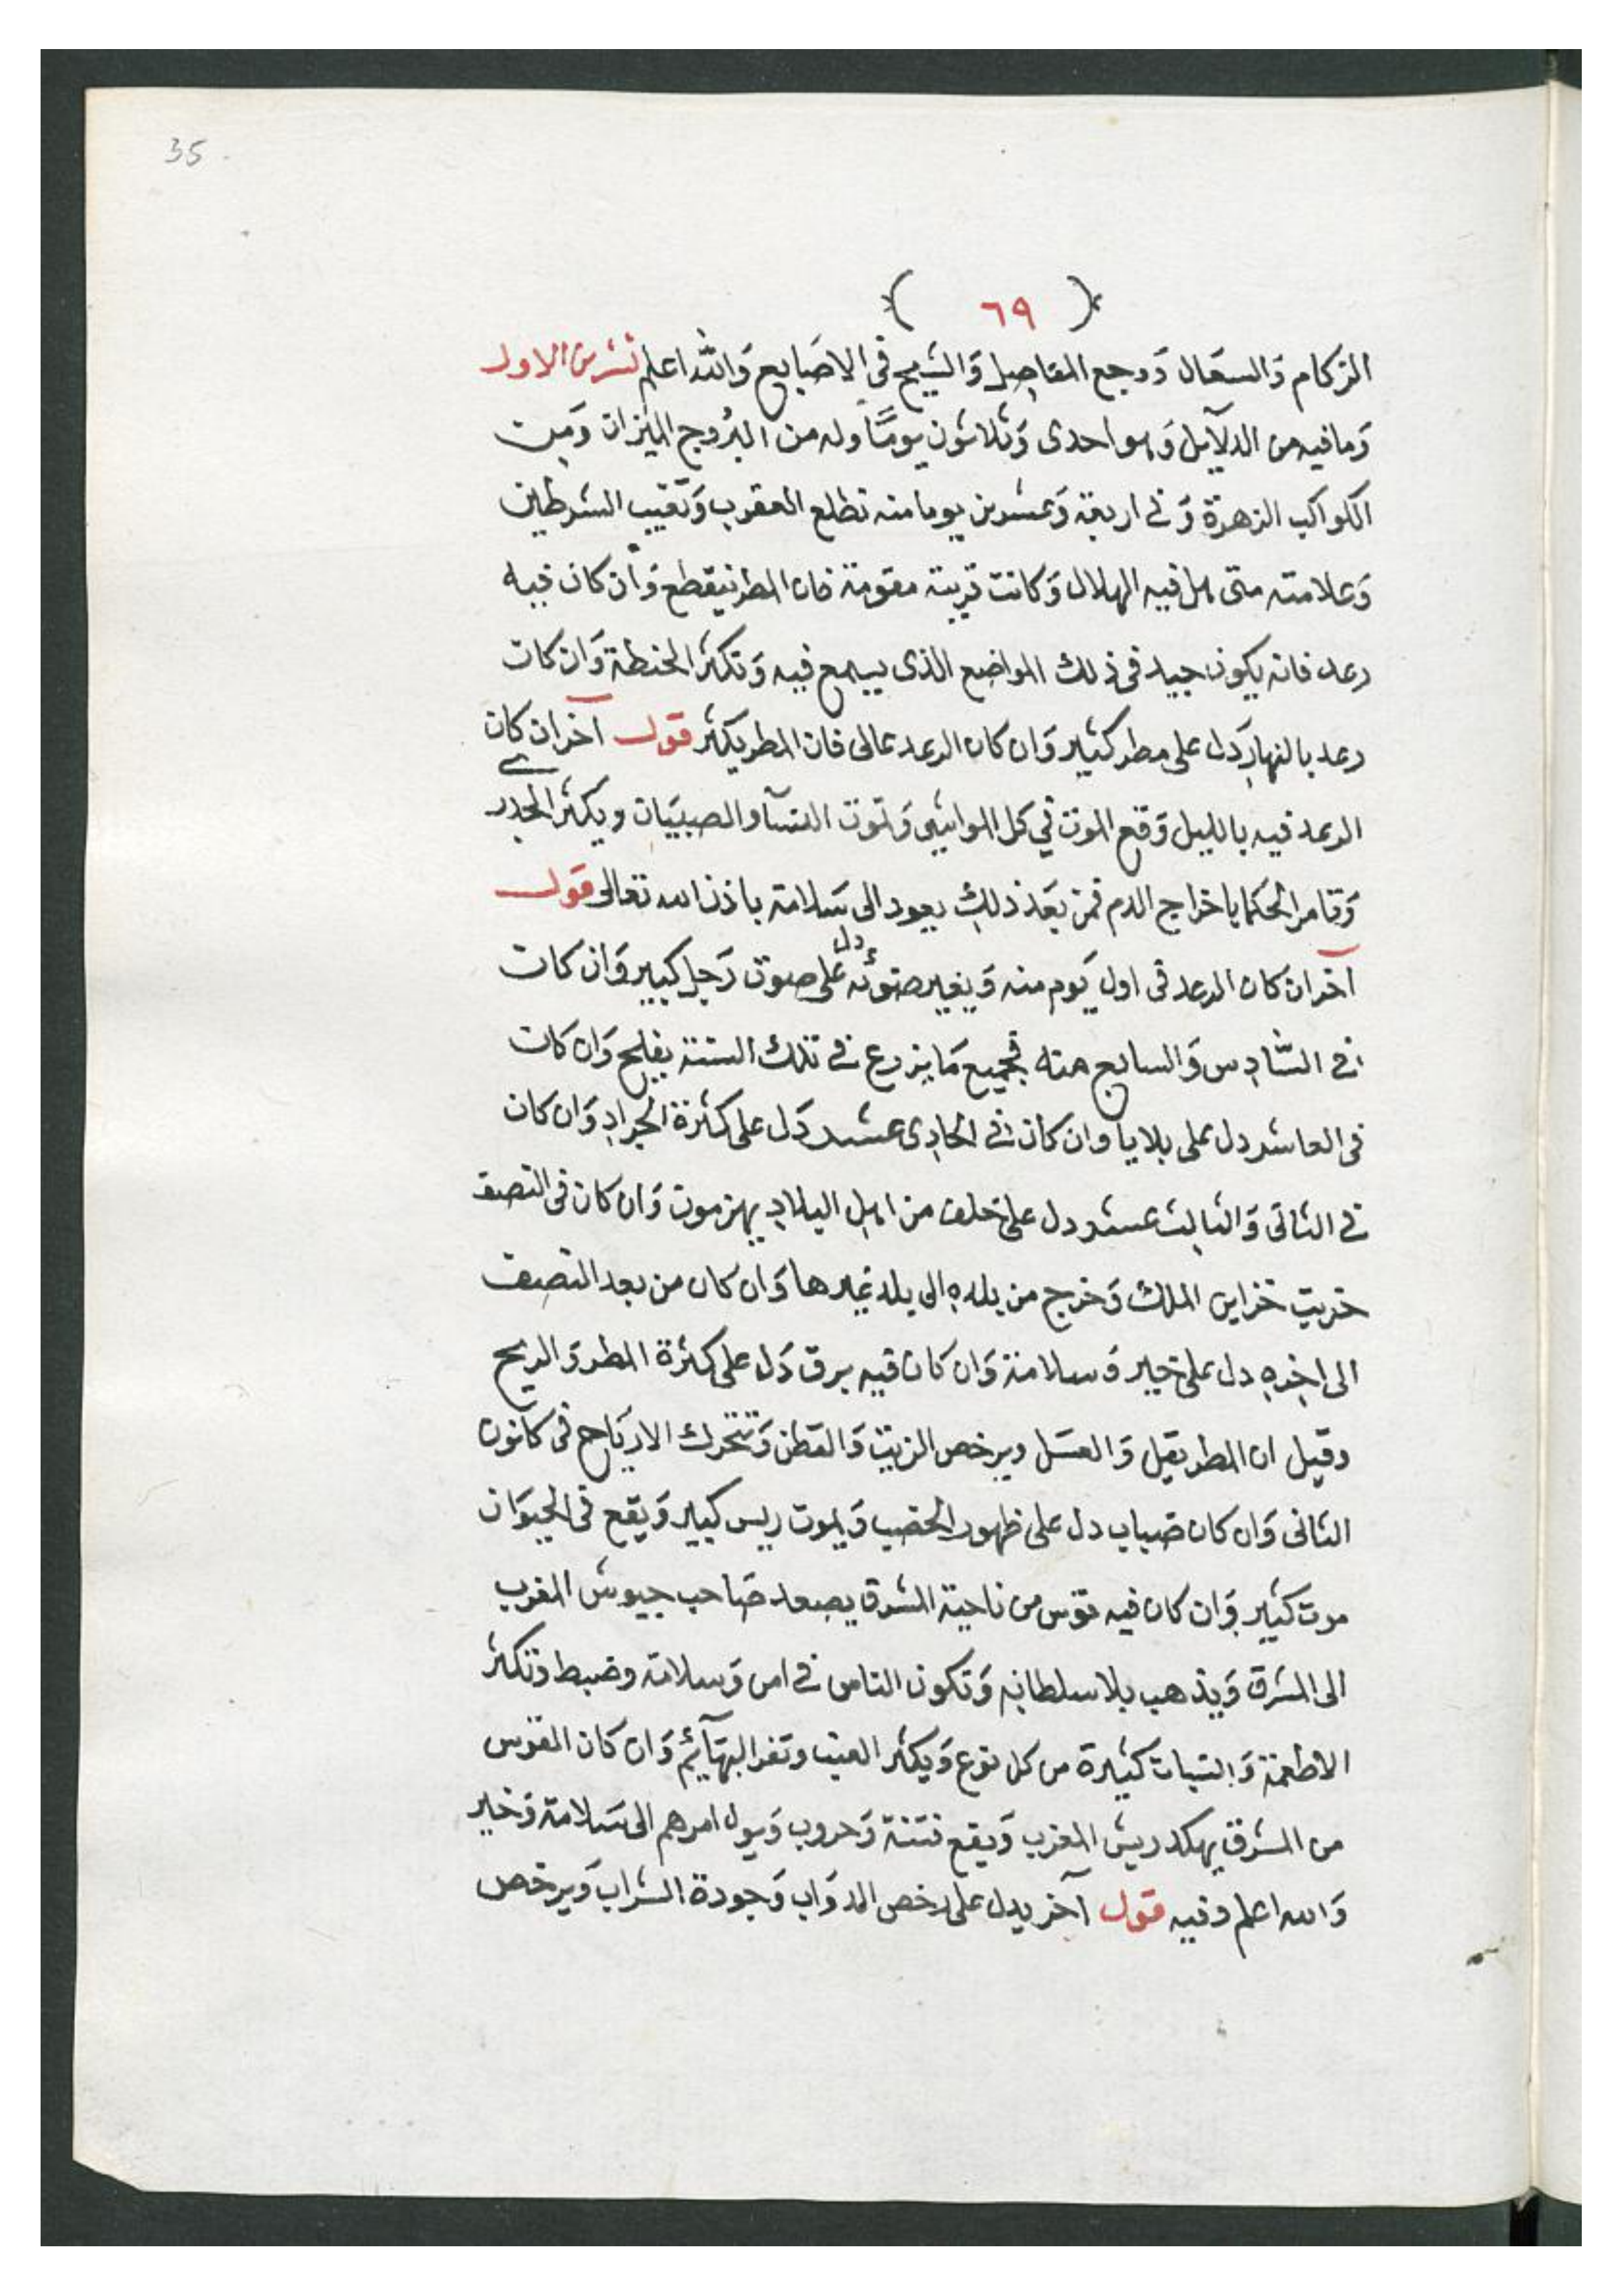 35
( ٦٩ )
الزكام وَالسعَال وَوجع المفاصِل وَالشيح فى الاصَابع وَالله اعلم تشرين الاول
وَمافيه من الدلآيل وَهو احدى وَثلاثون يومًا وله من البرُوج الميزان وَمن
الكواكب الزهرة وَفى اربعة وَعشرين يوما منه تطلع العقرب وَتغيب الشرطين
وَعلامته متى هل فيه الهلال وَكانت قربته مقومة فان المطر ينقطع وَان كان فيه
رعد فانه يكون جيد فى ذلك المواضع الذى يسمع فيه وَتكثر الحنطة وَان كان
رعد بالنهار دَل على مطر كثير وَان كان الرعد عالى فان المطر يكثر قول آخر ان كان
الرعد فيه بالليل وَقع الموت في كل المواشي وَتموت النسآ والصبيَان ويكثر الجدرى
وَتامر الحكما باخراج الدم فمن بعَد ذلك يعود الى سَلامة باذن الله تعالى قول
آخر ان كان الرعد فى اول يَوم منه وَيغير صَوته دل على صوت رَجل كبير وَان كان
فى السَّادِس وَالسابع منه فجميع مَا يزرع فى تلك السنة يفلح وَان كان
فى العاشر دل على بلايا وان كان فى الحادِى عشر دَل على كثرة الجرادِ وَان كان
فى الثانى وَالثالث عشر دل على خلف من اهل البلادِ يهزموت وَان كان فى النصف
خربت خزاين الملك وَخرج من بلده الى بلد غيرها وَان كان من بعد النصف
الى اخره دل على خير وَسلامة وَان كان فيه برق دَل على كثرة المطر وَالريح
وقيل ان المطر يقل وَالعسَل ويرخص الزيت وَالقطن وَتتحرك الاريَاح فى كانون
الثانى وَان كان ضباب دل على ظهور الخصب وَيموت ريس كبير وَيقع فى الحيوَان
موت كثير وَان كان فيه قوس من ناحية الشرق يصعد صَاحب جيوش المغرب
الى المشرق وَيذهب بلا سلطانه وَتكون الناس فى امن وَسلامة وضبط وتكثر
الاطعمة وَالنبات كثيرة من كل نوع وَيكثر العنب وتفر البهَآئم وَان كان القوس
من المشرق يهلك ريش المغرب وَيقع فتنة وَحروب وَيول امرهم الى سَلامة وَخير
وَالله اعلم وفيه قول آخر يدل على رخص الدوَاب وَجودة الشراب وَيرخص